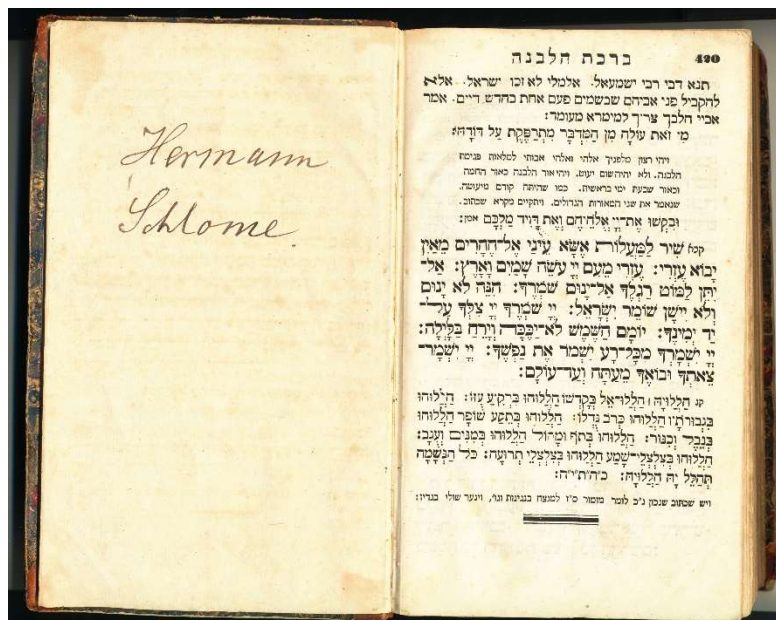 Hermann
Schlome.
ברכת הלבנה 420
תנא דבי רבי ישמעאל. אלמלי לא זכו ישראל. אלא
להקביל פני אביהם שבשמים פעם אחת בחדש דיים. אמר
אביי הלכך צריך למימרא מעומד:
מִי זֹאת עוֹלָה מִן הַמִּדְבָּר מִתְרַפֶּקֶת עַל דּוֹדָהּ:
ויהי רצון מלפניך אלהי ואלהי אבותי למלאות פגימת
הלבנה. ולא יהיה שום יעוט. ויהי אור הלבנה כאור החמה
וכאור שבעת ימי בראשית. כמו שהיתה קודם מיעוטה.
שנאמר את שני המאורות הגדולים. ויתקיים מקרא שכתוב.
וּבִקְשׁוּ אֶת־יְיָ אֱלֹהֵיהֶם וְאֶת דָּוִיד מַלְכָּם אמן:
קכא שִׁיר לַמַּעֲלוֹת אֶשָּׂא עֵינַי אֶל־הֶהָרִים מֵאַיִן
יָבוֹא עֶזְרִי: עֶזְרִי מֵעִם יְיָ עֹשֵׂה שָׁמַיִם וָאָרֶץ: אַל־
יִתֵּן לַמּוֹט רַגְלֶךָ אַל־יָנוּם שֹׁמְרֶךָ: הִנֵּה לֹא יָנוּם
וְלֹא יִישָׁן שׁוֹמֵר יִשְׂרָאֵל: יְיָ שֹׁמְרֶךָ יְיָ צִלְּךָ עַל־
יַד יְמִינֶךָ: יוֹמָם הַשֶּׁמֶשׁ לֹא־יַכֶּכָּה וְיָרֵחַ בַּלָּיְלָה:
יְיָ יִשְׁמָרְךָ מִכָּל־רָע יִשְׁמֹר אֶת נַפְשֶׁךָ: יְיָ יִשְׁמָר־
צֵאתְךָ וּבוֹאֶךָ מֵעַתָּה וְעַד־עוֹלָם:
קנ הַלְלוּיָהּ׀ הַלְלוּ־אֵל בְּקָדְשׁוֹ הַלְלוּהוּ בִּרְקִיעַ עֻזּוֹ: הַלְלוּהוּ
בִגְבוּרֹתָיו הַלְלוּהוּ כְּרֹב גֻּדְלוֹ: הַלְלוּהוּ בְּתֵקַע שׁוֹפָר הַלְלוּהוּ
בְּנֵבֶל וְכִנּוֹר: הַלְלוּהוּ בְתֹף וּמָחוֹל הַלְלוּהוּ בְּמִנִּים וְעֻגָב:
הַלְלוּהוּ בְצִלְצְלֵי־שָׁמַע הַלְלוּהוּ בְּצִלְצְלֵי תְרוּעָה: כֹּל הַנְּשָׁמָה
תְּהַלֵּל יָהּ הַלְלוּיָהּ: כ״ה״ת״י״ה:
ויש שכתוב שנכון ג״כ לומר מזמור ס״ז למנצח בנגינות וגו׳,